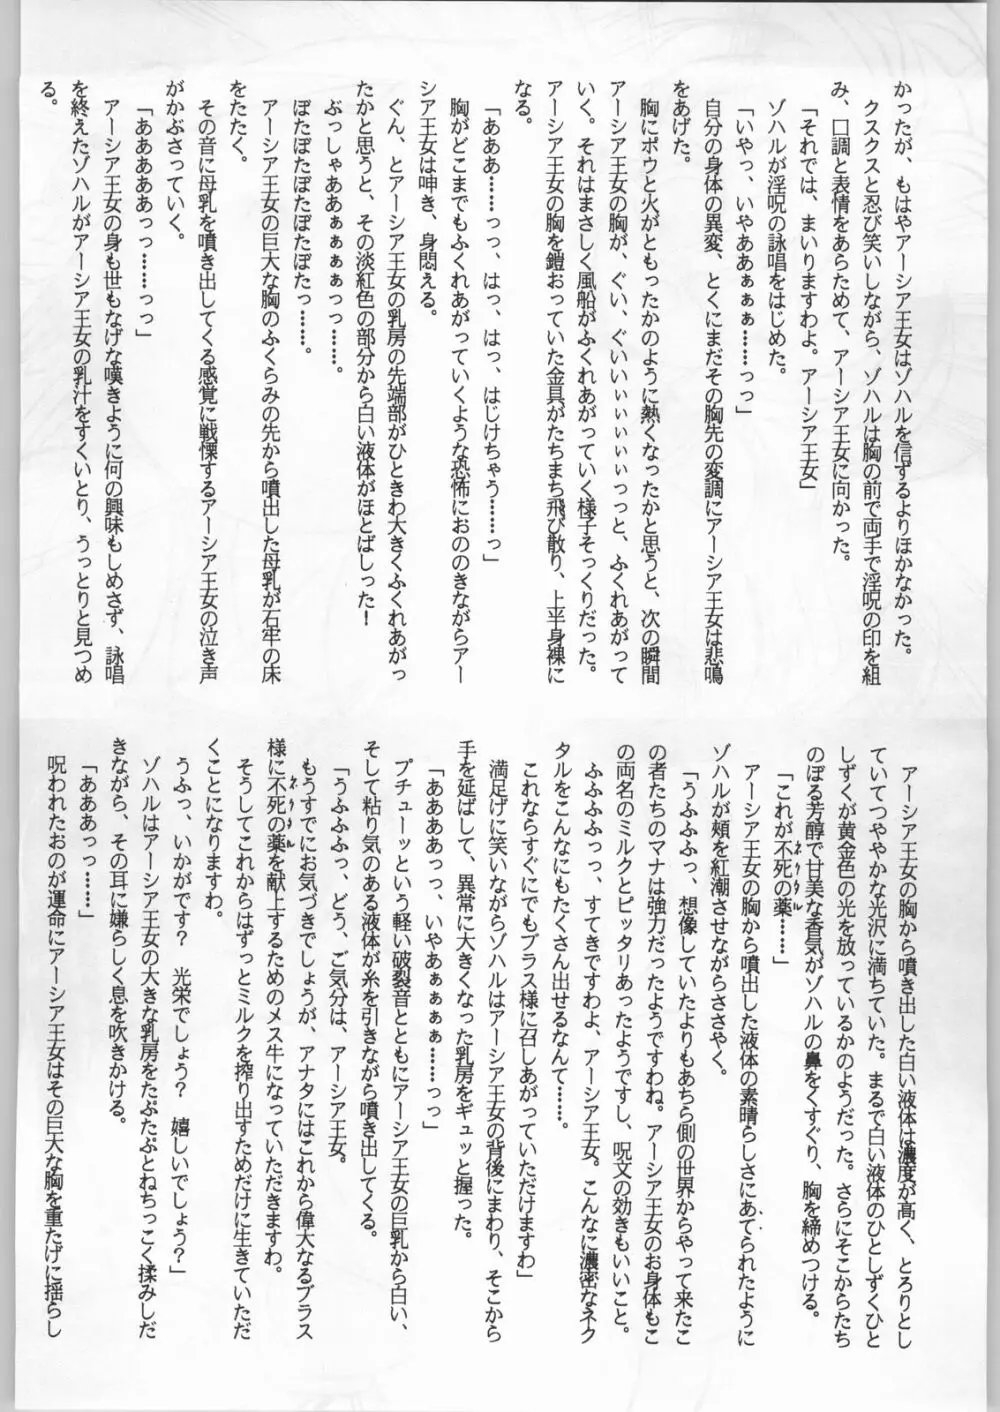 かったが、もはやアーシア王女はゾハルを信ずるよりほかなかった。
クスクスと忍び笑いしながら、ゾハルは胸の前で両手で淫呪の印を組
み、口調と表情をあらためて、アーシア王女に向かった。
「それでは、まいりますわよ。アーシア王女」
ゾハルが淫呪の詠唱をはじめた。
「いやっ、いやああぁぁぁ……っっ」
自分の身体の異変、とくにまだその胸先の変調にアーシア王女は悲鳴
をあげた。
胸にポウと火がともったかのように熱くなったかと思うと、次の瞬間
アーシア王女の胸が、ぐい、ぐいいぃぃぃぃっっと、ふくれあがって
いく。それはまさしく風船がふくれあがっていく様子そっくりだった。
アーシア王女の胸を鎧おっていた金具がたちまち飛び散り、上半身裸に
なる。
「あああ……っっ、はっ、はっ、はじけちゃう……っ」
胸がどこまでもふくれあがっていくような恐怖におののきながらアー
シア王女は呻き、身悶える。
ぐん、とアーシア王女の乳房の先端部がひときわ大きくふくれあがっ
たかと思うと、その淡紅色の部分から白い液体がほとばしった！
ぶっしゃああぁぁぁぁっっ……。
ぼたぼたぼたぼたぼたっ……。
アーシア王女の巨大な胸のふくらみの先から噴出した母乳が石牢の床
をたたく。
その音に母乳を噴き出してくる感覚に戦慄するアーシア王女の泣き声
がかぶさっていく。
「あああああっっ……っっ」
アーシア王女の身も世もなげな嘆きように何の興味もしめさず、詠唱
を終えたゾハルがアーシア王女の乳汁をすくいとり、うっとりと見つめ
る。
アーシア王女の胸から噴き出した白い液体は濃度が高く、とろりとし
ていてつややかな光沢に満ちていた。まるで白い液体のひとしずくひと
しずくが黄金色の光を放っているかのようだった。さらにそこからたち
のぼる芳醇で甘美な香気がゾハルの鼻をくすぐり、胸を締めつける。
「これが不死の薬（ネクタル）……」
アーシア王女の胸から噴出した液体の素晴らしさにあてられたように
ゾハルが頬を紅潮させながらささやく。
「うふふふっ、想像していたよりもあちら側の世界からやって来たこ
の者たちのマナは強力だったようですわね。アーシア王女のお身体もこ
の両名のミルクとピッタリあったようですし、呪文の効きもいいこと。
ふふふふっっ、すてきですわよ、アーシア王女。こんなに濃密なネク
タルをこんなにもたくさん出せるなんて……。
これならすぐにでもブラス様に召しあがっていただけますわ」
満足げに笑いながらゾハルはアーシア王女の背後にまわり、そこから
手を延ばして、異常に大きくなった乳房をギュッと握った。
「ああああっっ、いやあぁぁぁぁ……っっ」
プチューッという軽い破裂音とともにアーシア王女の巨乳から白い、
そして粘り気のある液体が糸を引きながら噴き出してくる。
「うふふふっ、どう、ご気分は、アーシア王女。
もうすでにお気づきでしょうが、アナタにはこれから偉大なるブラス
様に不死の薬（ネクタル）を献上するためのメス牛になっていただきますわ。
そうしてこれからはずっとミルクを搾り出すためだけに生きていただ
くことになりますわ。
うふっ、いかがです？　光栄でしょう？　嬉しいでしょう？」
ゾハルはアーシア王女の大きな乳房をたぷたぷとねちっこく揉みしだ
きながら、その耳に嫌らしく息を吹きかける。
「あああっっ……」
呪われたおのが運命にアーシア王女はその巨大な胸を重たげに揺らし